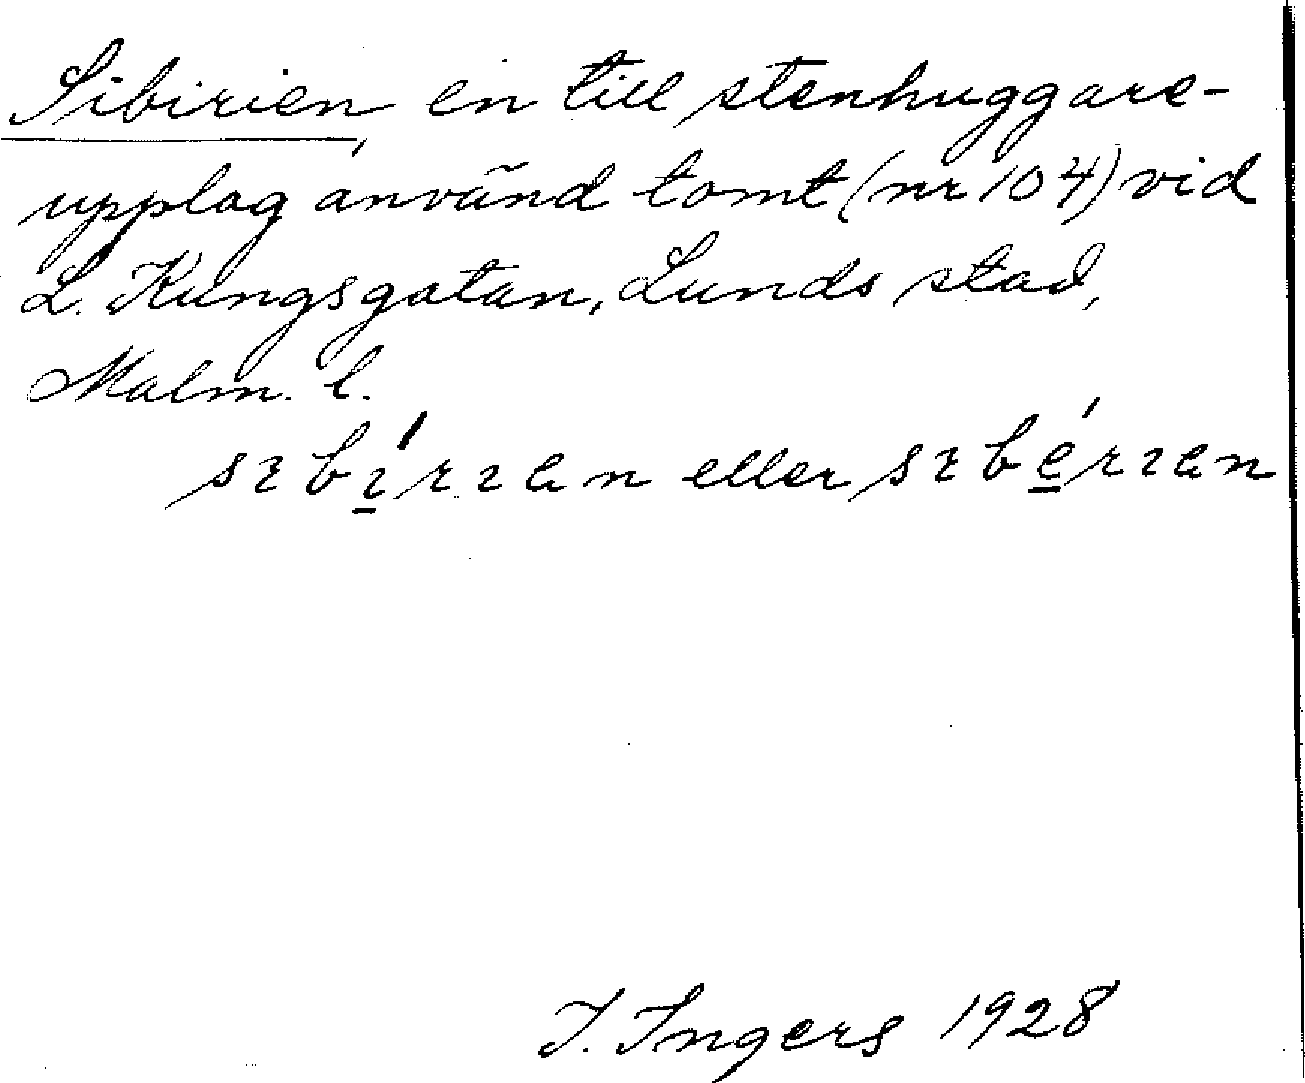 Sibirien, en till stenhuggare-
upplag använd tomt (nr 104) vid
L. Kungsgatan, Lunds stad,
Malm. l.
sɪbɪ́rɪən eller sɪbérɪən
I. Ingers 1928